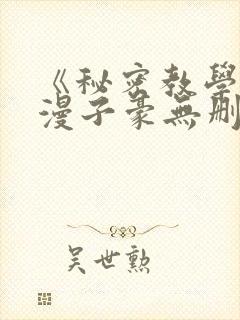 《秘密教學
漫子豪無刪
吴世勲